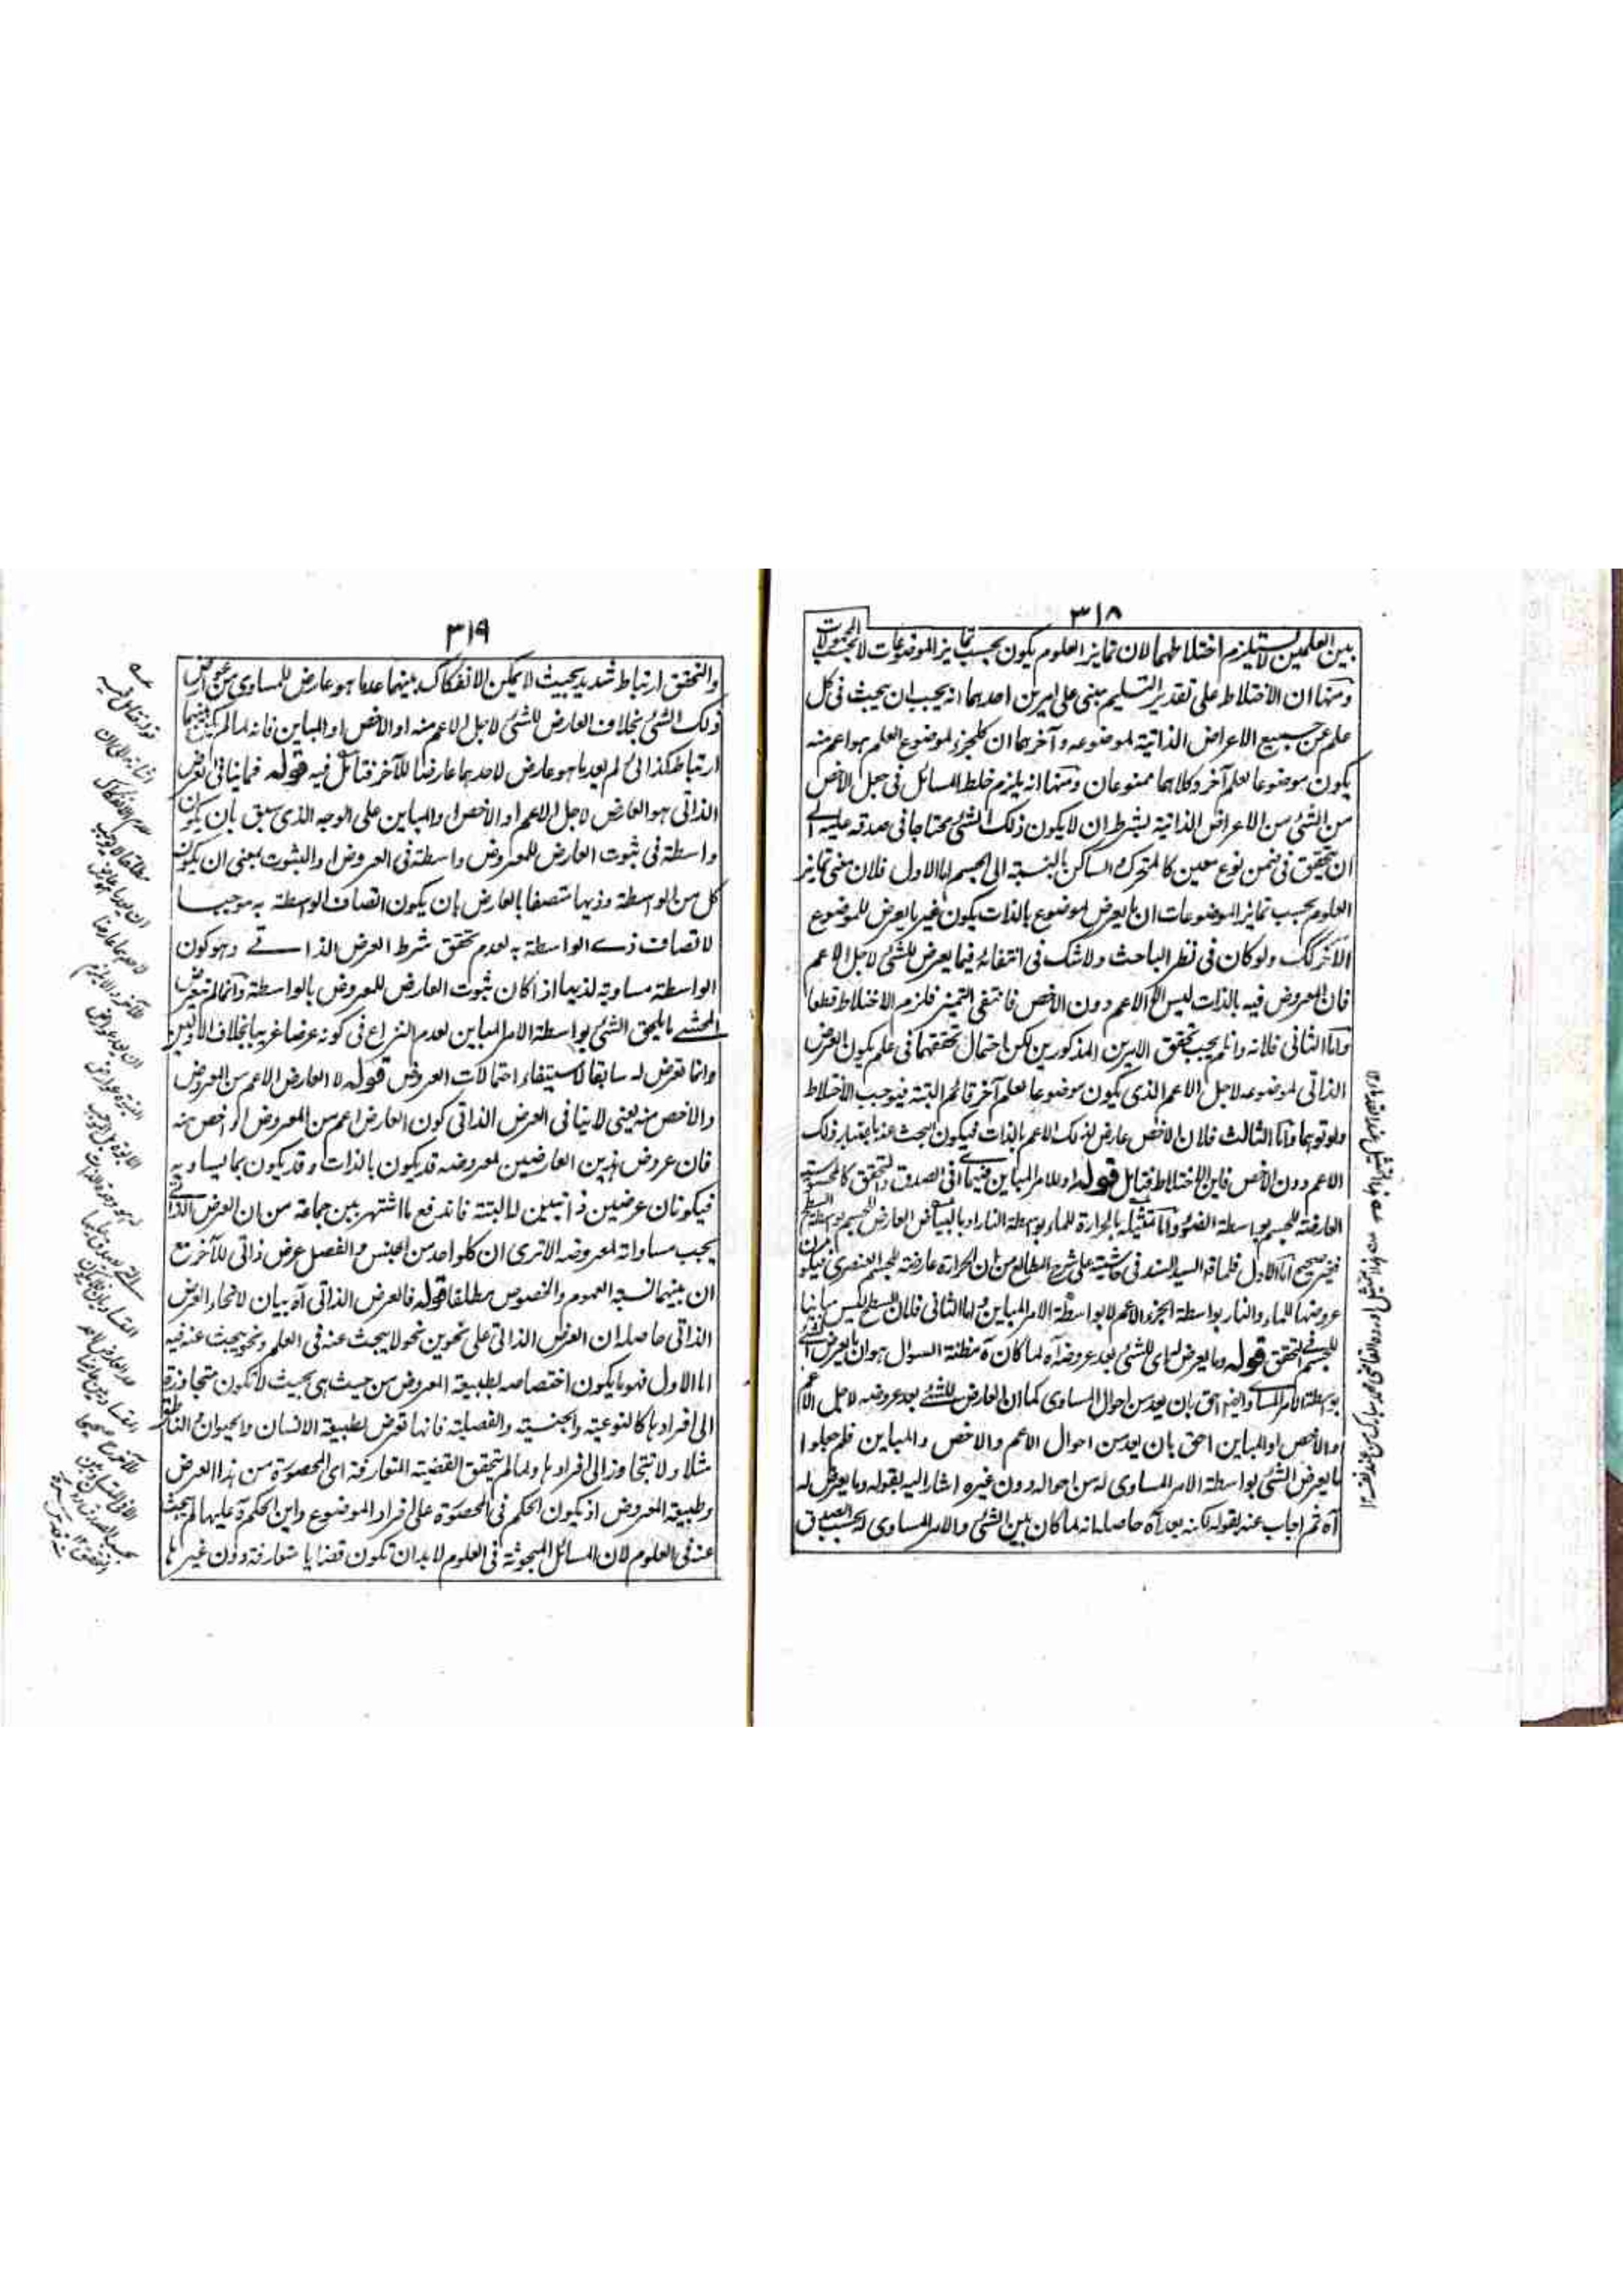 ٣١٨
بين العلمين لا يستلزم اختلاطهما لان تمايز العلوم يكون بحسب تمايز الموضوعات لا بحسب المحمولات
ومنها ان الاختلاط على تقدير التسليم مبنى على امرين احدهما انه يجب ان يبحث فى كل
علم عن جميع الاعراض الذاتية لموضوعه وآخرهما ان كل جزء لموضوع العلم هو اعم منه
يكون موضوعا لعلم آخر وكلاهما ممنوعان ومنها انه يلزم خلط المسائل فى جعل الاخص
من الشئ من الاعراض الذاتية بشرط ان لا يكون ذلك الشئ محتاجا فى صدقه عليه الى
ان يتحقق فى ضمن نوع معين كالمتحرك والساكن بالنسبة الى الجسم اما الاول فلان معنى تمايز
العلوم بحسب تمايز الموضوعات ان ما يعرض لموضوع بالذات يكون غير ما يعرض للموضوع
الآخر كك ولو كان فى نظر الباحث ولا شك فى انتفائه فيما يعرض للشئ لاجل الاعم
فان المعروض فيه بالذات ليس الا الاعم دون الاخص فانتفى التميز فلزم الاختلاط قطعا
واما الثانى فلانه وان لم يجب تحقق الامرين المذكورين لكن احتمال تحققهما فى علم يكون العرض
الذاتى لموضوعه لاجل الاعم الذى يكون موضوعا لعلم آخر قائم البتة فيوجب الاختلاط
ولو توهما واما الثالث فلان الاخص عارض لذلك الاعم بالذات فيكون البحث عنه باعتبار ذلك
الاعم دون الاخص فاين الاختلاط فتامل قوله او للامر المباين فيهما اى فى الصدق والتحقق كالمحسوسية
العارضة للجسم بواسطة الضوء واما تمثيله بالحرارة للماء بواسطة النار او بالبياض العارض للجسم بواسطة السطح
فغير صحيح اما الاول فلما قال السيد السند فى حاشيته على شرح المطالع من ان الحرارة عارضة للجسم العنصرى فيكون
عروضها للماء والنار بواسطة الجزء الاعم لا بواسطة الامر المباين واما الثانى فلان السطح ليس مباينا
للجسم فى التحقق قوله وما يعرض له اى للشئ بعد عروضه آه لما كان مظنة السوال هو ان ما يعرض الشئ
بواسطة الامر المساوى ايضا احق بان يعد من احوال المساوى كما ان العارض للشئ بعد عروضه لاجل الاعم
او الاخص او المباين احق بان يعد من احوال الاعم والاخص والمباين فلم جعلوا
ما يعرض الشئ بواسطة الامر المساوى له من احواله دون غيره اشار اليه بقوله وما يعرض له
آه ثم اجاب عنه بقوله لكنه بعد آه حاصله انه لما كان بين الشئ والامر المساوى له بحسب الصدق
٣١٩
والتحقق ارتباط شديد بحيث لا يمكن الانفكاك بينهما عد ما هو عارض للمساوى من عوارض
ذلك الشئ بخلاف العارض للشئ لاجل الاعم منه او الاخص او المباين فانه لما لم يكن بينهما
ارتباط كذائى لم يعد ما هو عارض لاحدهما عارضا للآخر فتامل فيه قوله فما ينافى العرض
الذاتى هو العارض لاجل الاعم او الاخص او المباين على الوجه الذى سبق بان يكون
واسطة فى ثبوت العارض للمعروض واسطة فى العروض او الثبوت بمعنى ان يكون
كل من الواسطة وذيها متصفا بالعارض بان يكون اتصاف الواسطة به موجبا
لاتصاف ذى الواسطة به لعدم تحقق شرط العرض الذاتى وهو كون
الواسطة مساوية لذيها اذا كان ثبوت العارض للمعروض بالواسطة وانما لم يتعرض
المحشى ما يلحق الشئ بواسطة الامر المباين لعدم النزاع فى كونه عرضا غريبا بخلاف الاولين
وانما تعرض له سابقا لاستيفاء احتمالات العروض قوله لا العارض الاعم من المعروض
والاخص منه يعنى لا ينافى العرض الذاتى كون العارض اعم من المعروض او اخص منه
فان عروض هذين العارضين لمعروضه قد يكون بالذات وقد يكون بما يساويه
فيكونان عرضين ذاتيين له البتة فاندفع ما اشتهر بين جماعة من ان العرض الذاتى
يجب مساواته لمعروضه الا ترى ان كلا واحد من الجنس والفصل عرض ذاتى للآخر مع
ان بينهما نسبة العموم والخصوص مطلقا قوله فالعرض الذاتى آه بيان لانحاء العرض
الذاتى حاصله ان العرض الذاتى على نحوين نحو لا يبحث عنه فى العلم ونحو يبحث عنه فيه
اما الاول فهو ما يكون اختصاصه لطبيعة المعروض من حيث هى بحيث لا تكون متجاوزة
الى افرادها كالنوعية والجنسية والفصلية فانها تعرض لطبيعة الانسان والحيوان والناطق
مثلا ولا تتجاوز الى افرادها ولما لم يتحقق القضية المتعارفة اى المحصورة من هذا العرض
وطبيعة المعروض اذ يكون الحكم فى المحصورة على افراد الموضوع واين الحكم عليها لم يبحث
عنه فى العلوم لان المسائل المبحوثة فى العلوم لا بد ان تكون قضايا متعارفة دون غيرها